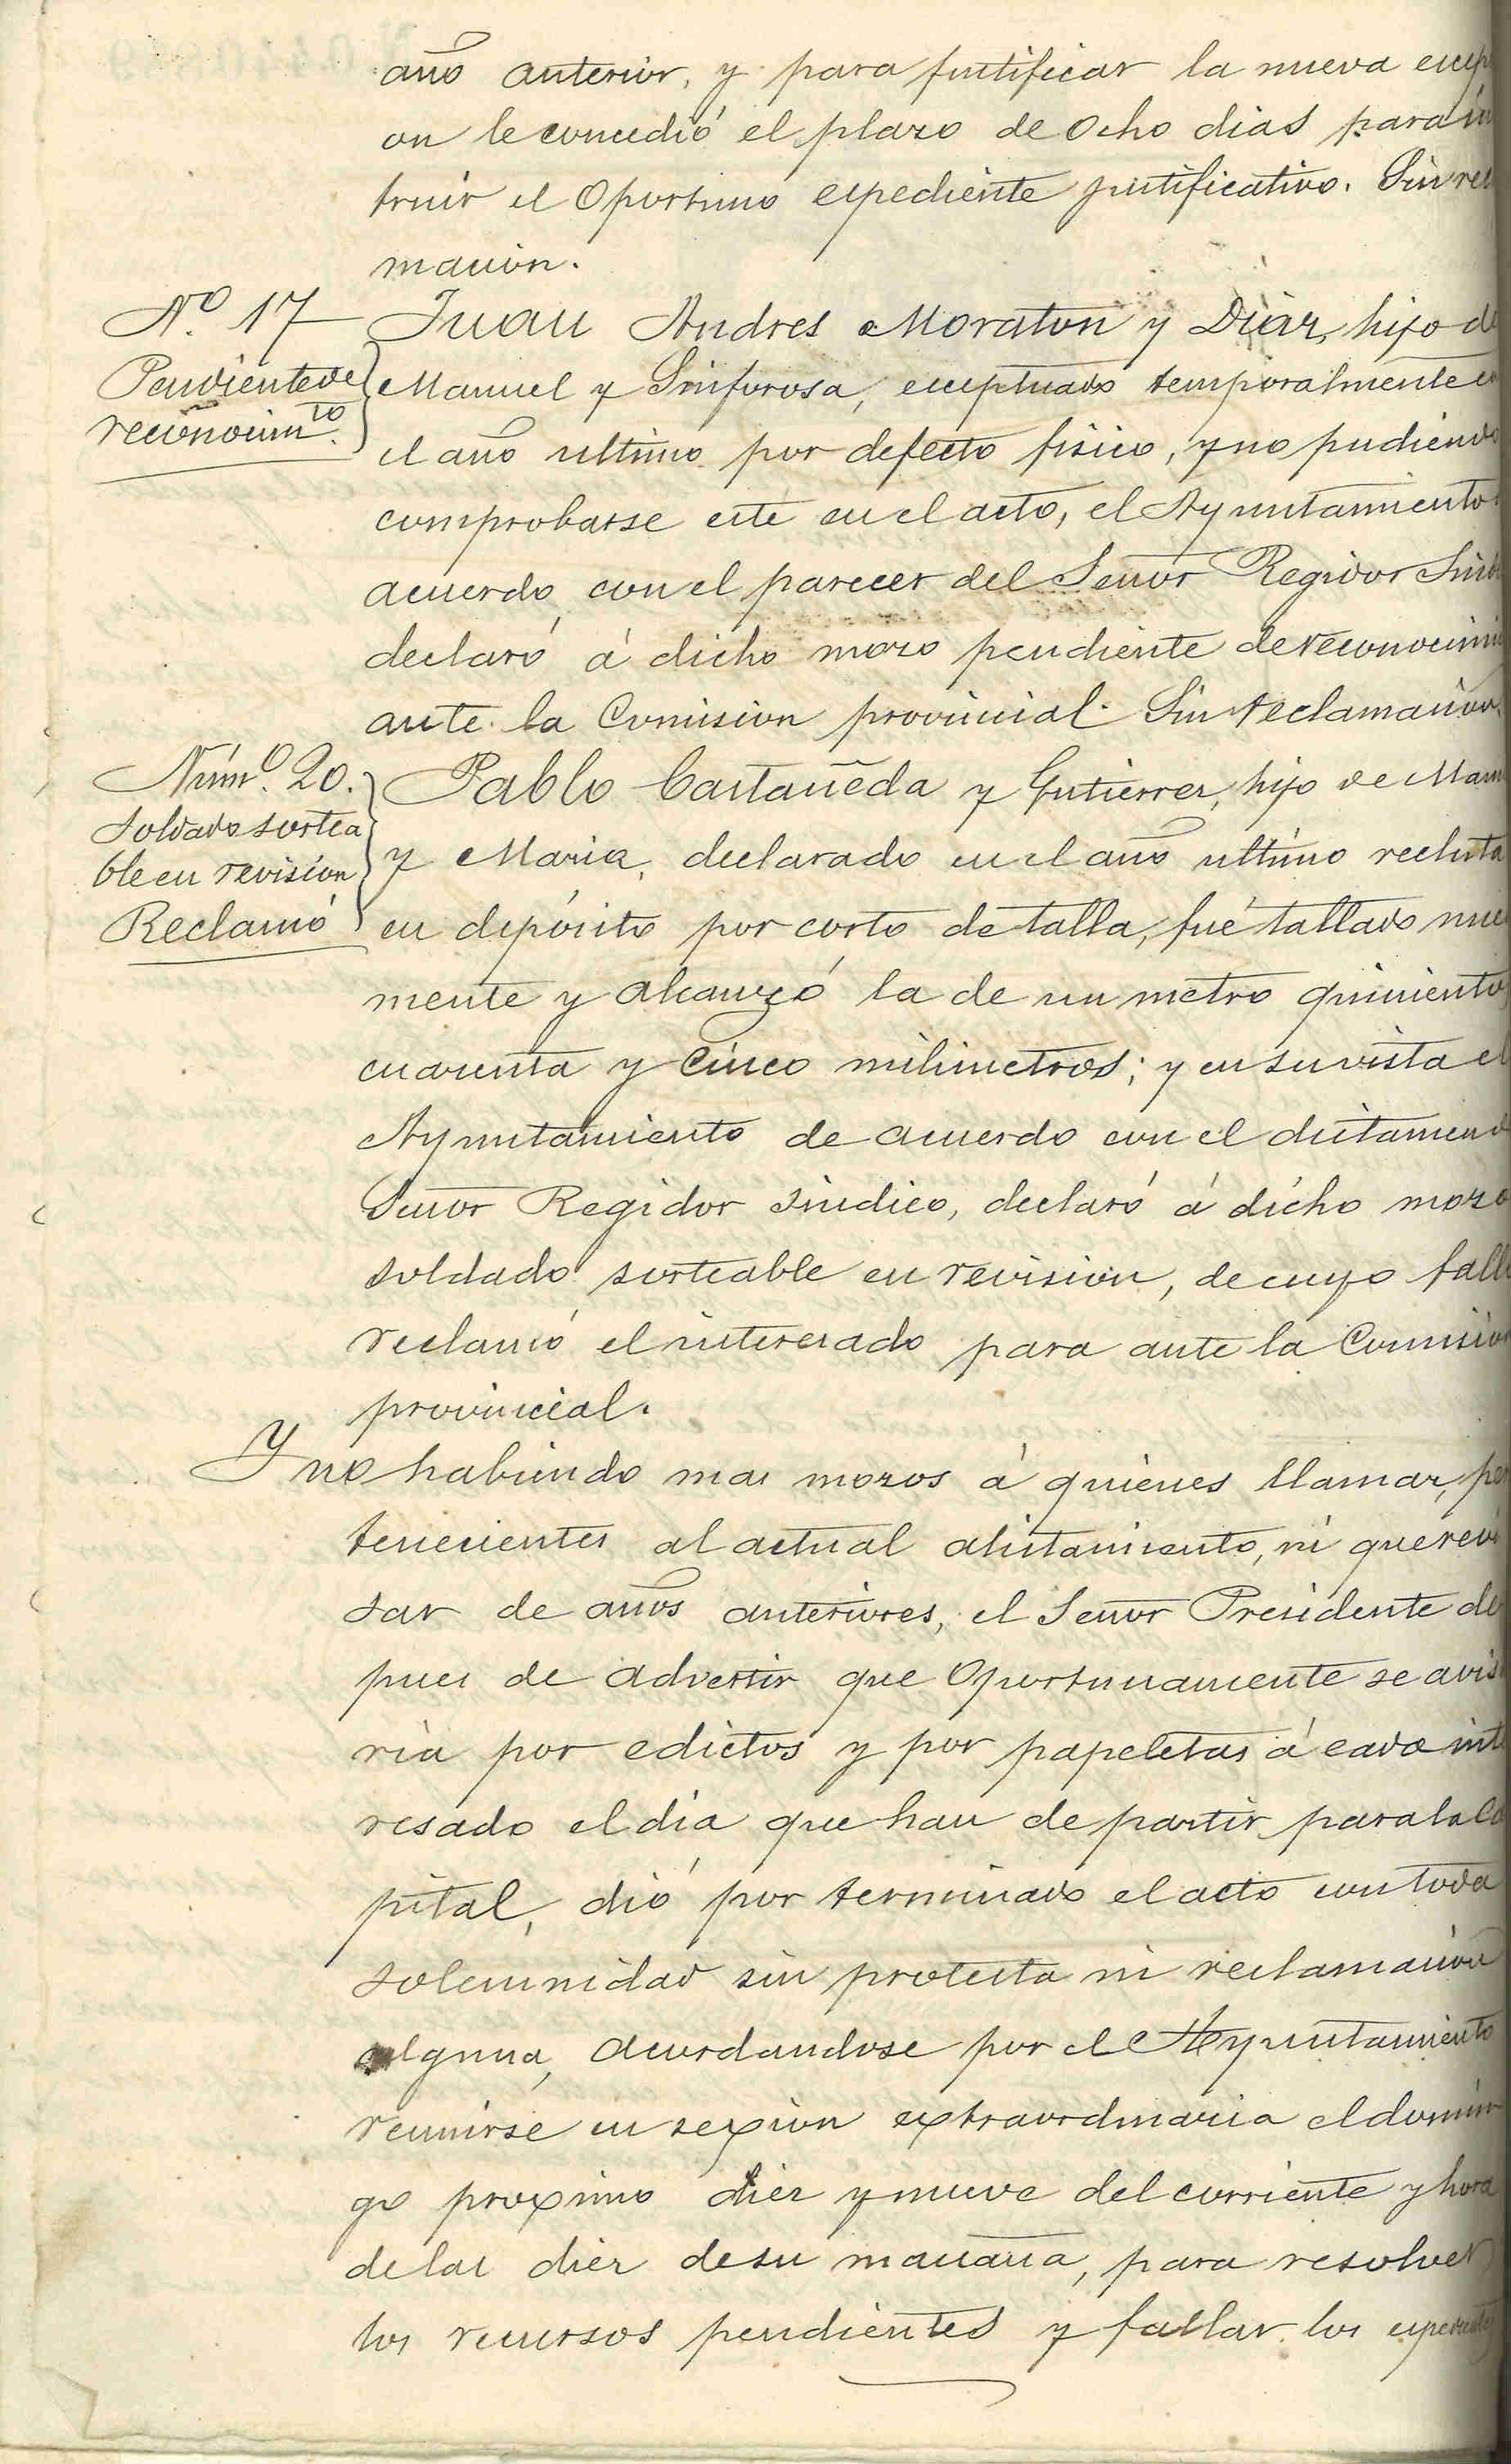 año anterior, y para justificar la nueva excep
on le concedió el plazo de ocho dias para ins
truir el oportuno espediente justificativo. Sin recl
macion.
Nº 17
Pendiente de
reconocimto.
Juan Andres Moraton y Diaz, hijo de
Manuel y Sinforosa, exceptuado temporalmente en
el año ultimo por defecto fisico, y no pudiendo
comprobarse este en el acto, el Ayuntamiento
acuerdo, con el parecer del Señor Regidor Sind
declaró á dicho mozo pendiente de reconocimi
ante la Comision provincial. Sin reclamacion.
Númº. 20.
Soldado sortea
ble en revision
Reclamó
Pablo Castañeda y Gutierrez, hijo de Manu
y Maria, declarado en el año ultimo recluta
en depósito por corto de talla, fué tallado nue
mente y alcanzó la de un metro quiniento
cuarenta y cinco milimetros; y en su vista el
Ayuntamiento de acuerdo con el dictamen d
Señor Regidor sindico, declaró á dicho mozo
soldado sorteable en revision, de cuyo fall
reclamó el interesado para ante la Comision
provincial.
Y no habiendo mas mozos á quienes llamar, per
tenecientes al actual alistamiento, ni que revi
sar de años anteriores, el Señor Presidente des
pues de advertir que oportunamente se avisa
ria por edictos y por papeletas á cada inte
resado el dia que han de partir para la ca
pital, dió por terminado el acto con toda
solemnidad sin protesta ni reclamacion
alguna, acordandose por el Ayuntamiento
reunirse en sexion extraordinaria el domin
go proximo diez y nueve del corriente y hora
de las diez de su mañana, para resolver
los recursos pendientes y fallar los espedientes